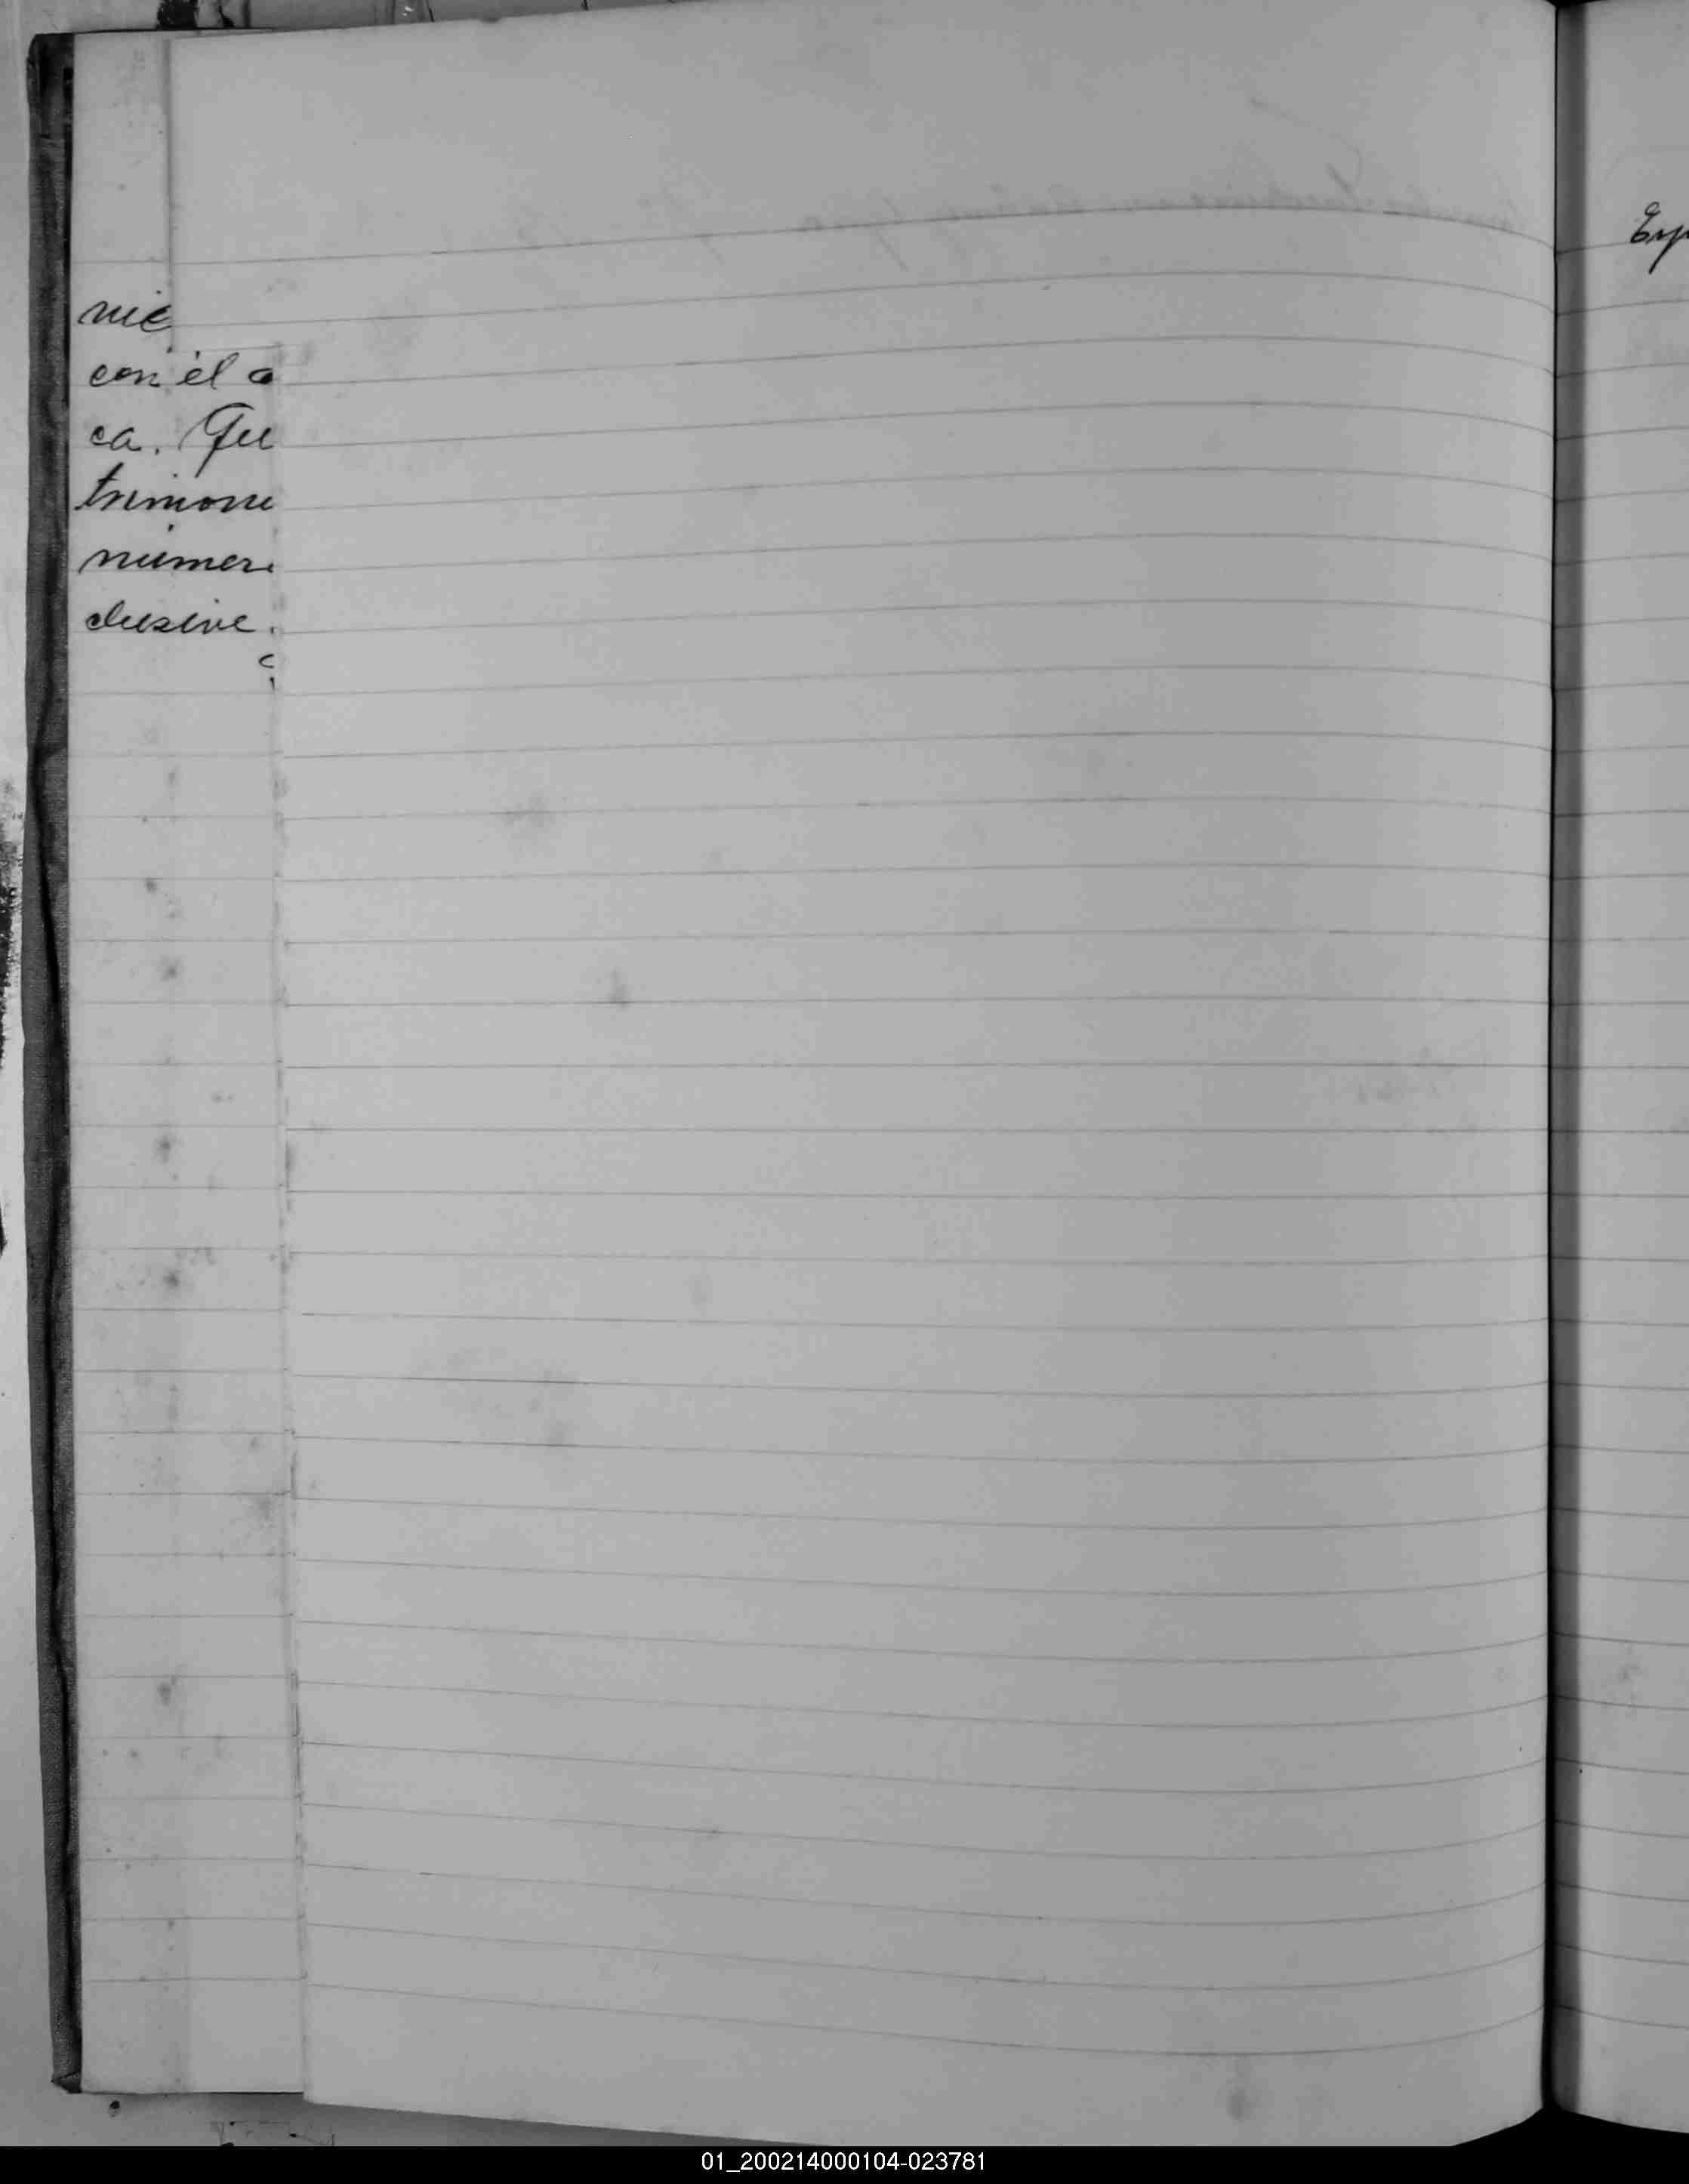 nie
con él a
ca. Que
trimoni
númer
clusive.
Esp
01_200214000104-023781